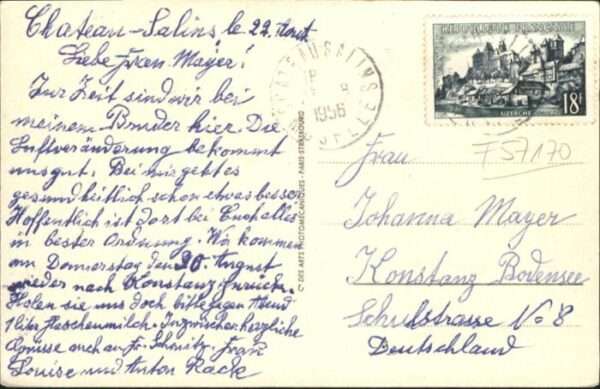 Chateau-Salins le 22. Aout
Liebe Frau Mayer!
Zur Zeit sind wir bei
meinem Bruder hier. Die
Luftveränderung bekommt
uns gut. Bei mir geht es
gesundheitlich schon etwas besser
Hoffentlich ist dort bei Euch alles
in bester Ordnung. Wir kommen
am Donnerstag den 30. August
wieder nach Konstanz zurück.
Holen sie uns doch bitte gegen Abend
1 liter flaschenmilch. Inzwischen herzliche
Grüsse auch an Fr. Schmitz. Frau
Louise und Anton Rack
CHATEAU SALINS
1956
MOSELLE
REPUBLIQUE FRANÇAISE
UZERCHE
18F
Frau
F57170
Johanna Mayer
Konstanz Bodensee
Schulstrasse No 8
Deutschland
C° DES ARTS PHOTOMÉCANIQUES - PARIS-STRASBOURG